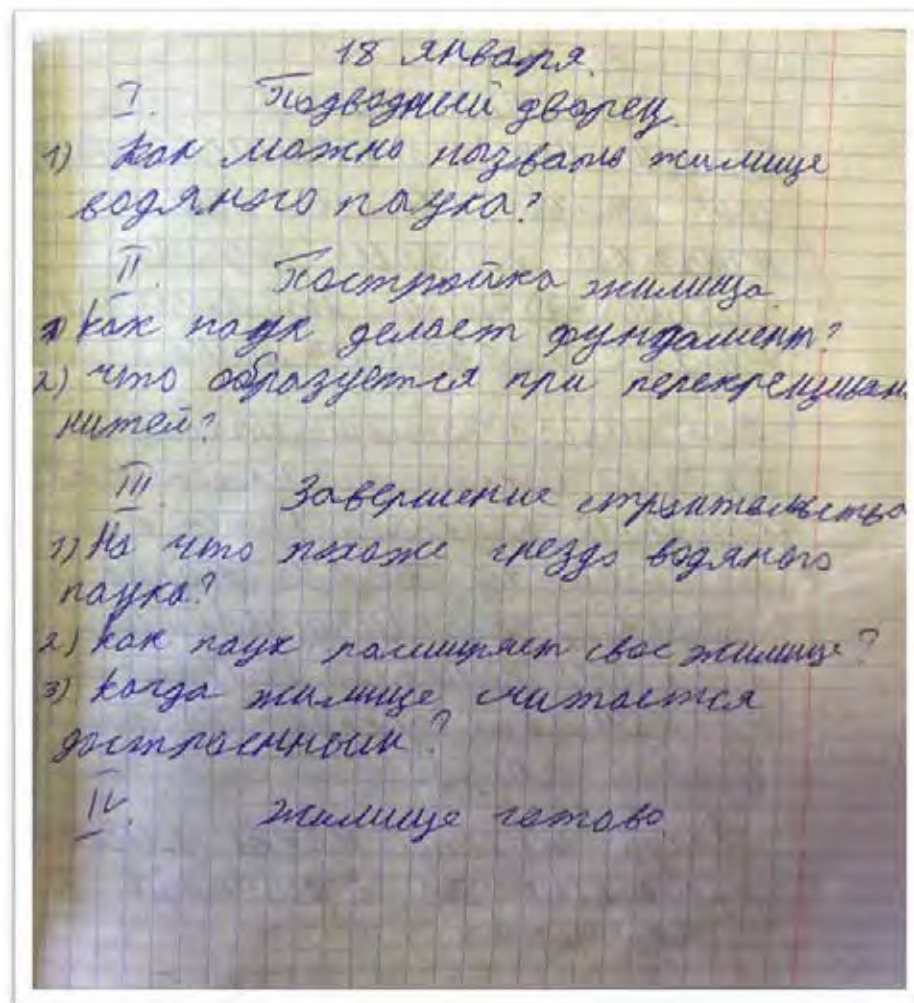 18 января.
I. Подводный дворец.
1) Как можно назвать жилище
водяного паука?
II. Постройка жилища
1) Как паук делает фундамент?
2) Что образуется при перекрещиван
нитей?
III. Завершение строительства
1) На что похоже гнездо водяного
паука?
2) Как паук расширяет свое жилище?
3) Когда жилище считается
достроенным?
IV. Жилище готово